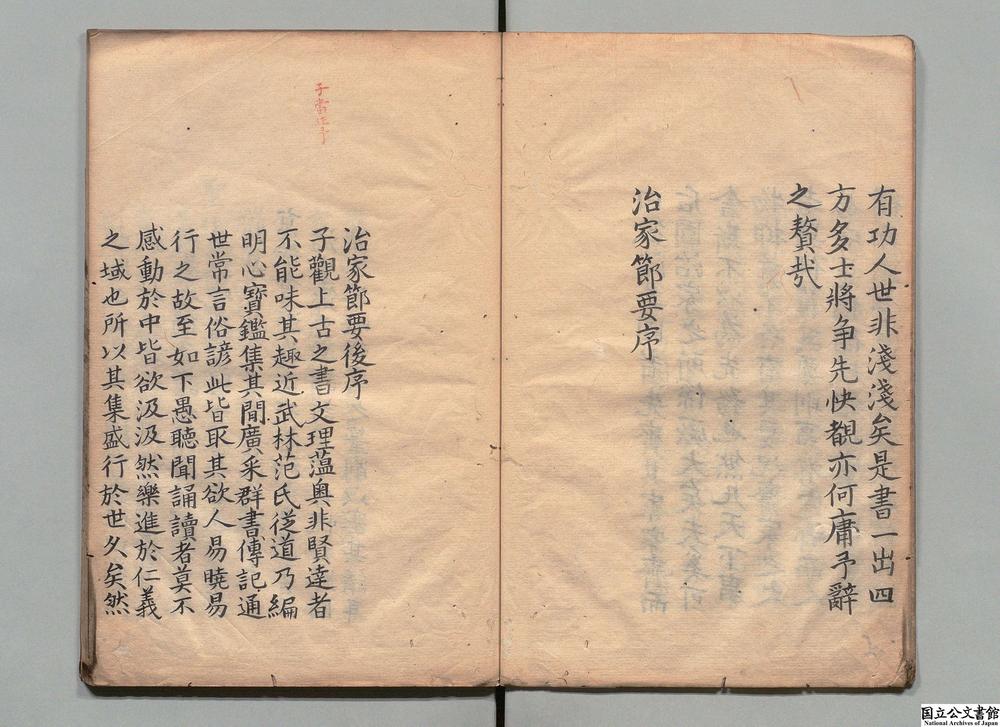 有功人世非淺淺矣是書一出四
方多士將争先快覩亦何庸予辭
之贅哉
治家節要序
治家節要後序
子觀上古之書文理薀奥非賢達者
不能味其趣近武林范氏從道乃編
明心寶鑑集其間廣采群書傳記通
世常言俗諺此皆取其欲人易曉易
行之故至如下愚聽聞誦讀者莫不
感動於中皆欲汲汲然樂進於仁義
之域也所以其集盛行於世久矣然
国立公文書館
National Archives of Japan